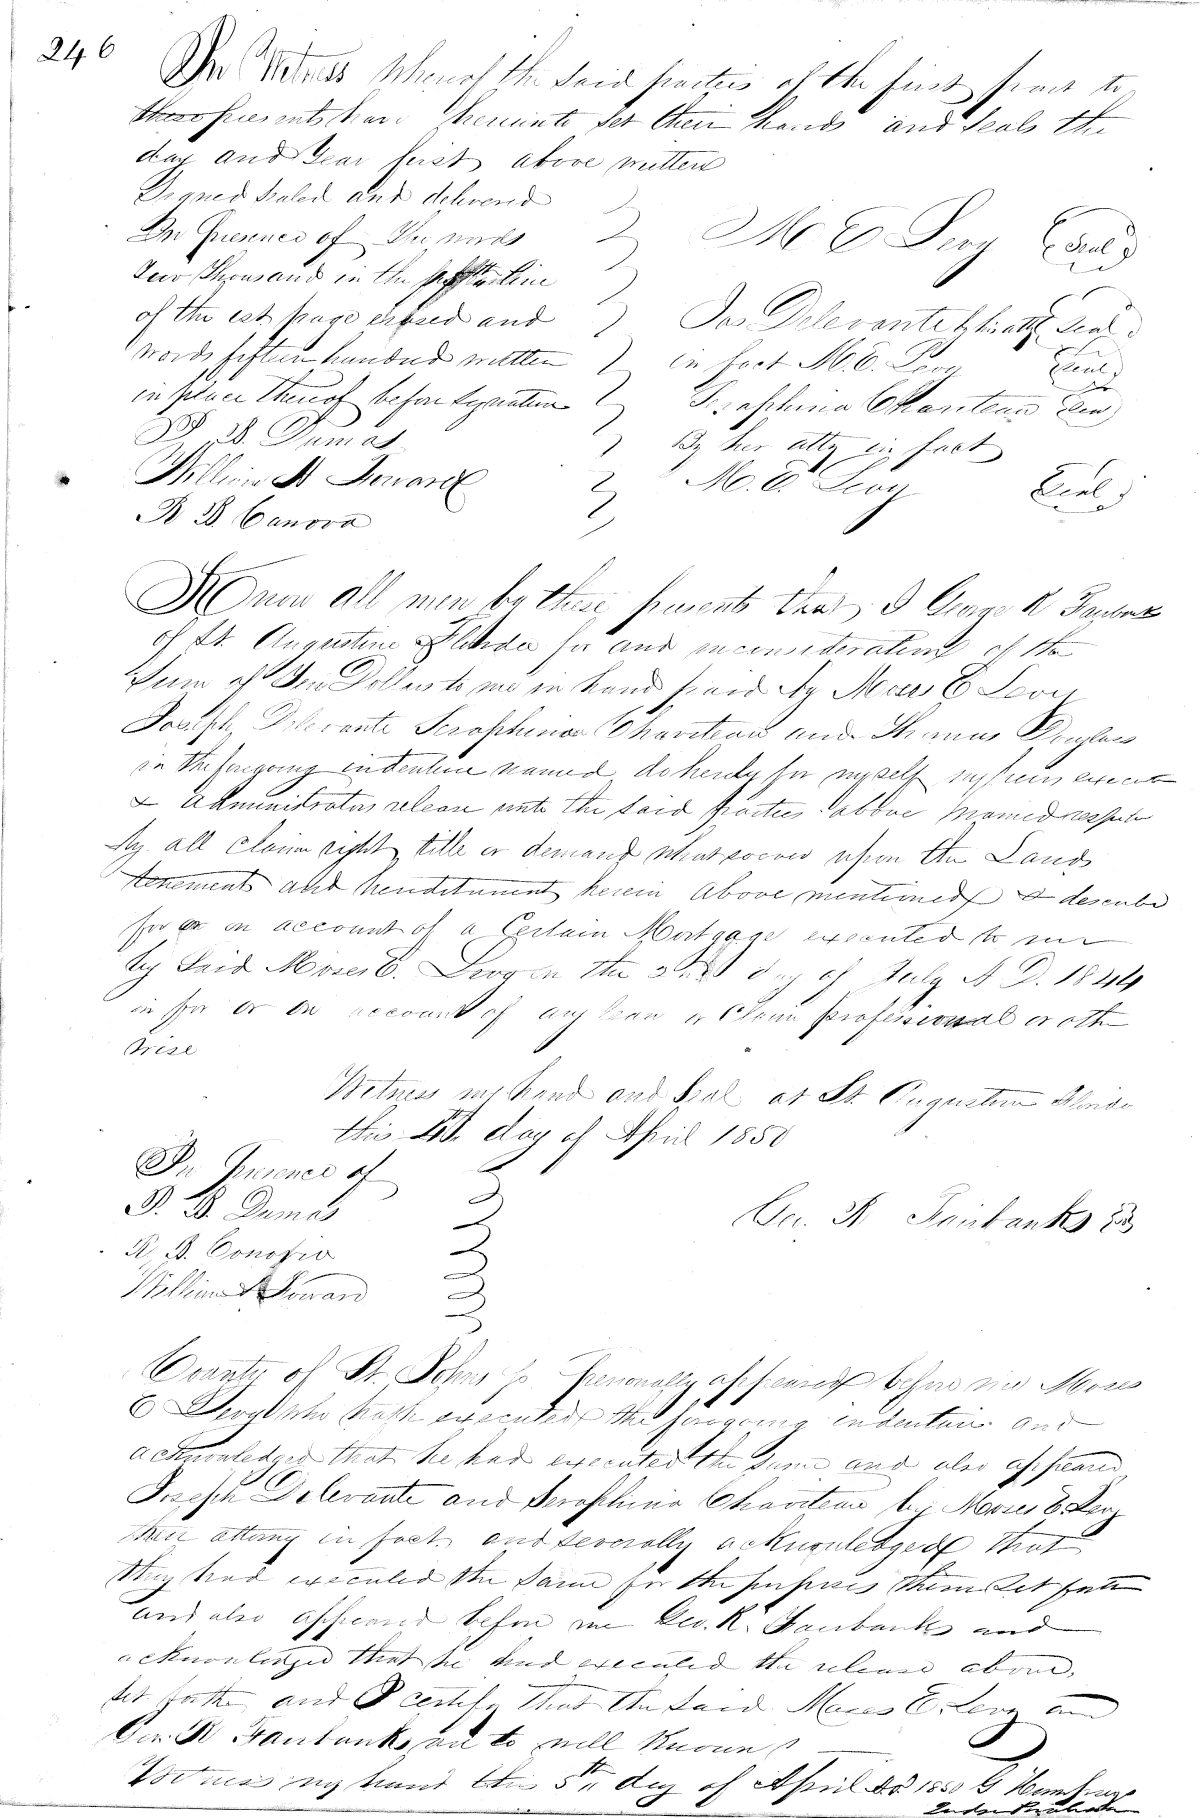 246
In Witness Whereof the Said parties of the first part to
these presents have hereunto Set their hands and Seals the
day and Year first above written
Signed Sealed and delivered
In Presence of The words
two thousand in the line
of the est page erased and
words fifteen hundred written
in place thereof before Signature
P. B. Dumas
William A Howard
R B Canova
M E Levy Seal
Jos Delevante by his atty Seal
in fact M. E. Levy Seal
Seraphina Chaviteau Seal
By her atty in fact
M. E. Levy Seal
Know all men by these presents that I George R Fairbanks
of St. Augustine Florida for and in consideration of the
Sum of Ten Dollars to me in hand paid by Moses E Levy
Joseph Delevante Seraphina Chaviteau and Thomas Douglass
in the foregoing indenture named do hereby for myself my heirs
& Administrators release unto the Said parties above named
ly all claim right title or demand whatsoever upon the Lands
tenements and herein above mentioned &
for or on account of a Certain Mortgage executed to me
by Said Moses E. Levy on the 2nd day of July A D. 1844
in for or on account of any lean or Claim professional or oth
wise
Witness my hand and Seal at St. Augustine Florida
this 4th day of April 1850
In Presence of
P. B. Dumas
R. B.
William A Howard
Geo. R Fairbanks
County of St. Johns Personally appeared before me Moses
E Levy who hath executed the foregoing indenture and
acknowledged that he had executed the Same and also appeared
Joseph Delevante and Seraphina Chaviteau by Moses E. Levy
their attorny in fact and severally acknowledged that
they had executed the Same for the purposes therein Set forth
and also appeared before me Geo. R. Fairbanks and
acknowledged that he had executed the release above
set forth and I certify that the Said Moses E. Levy and
Geo. R Fairbanks are to well Known
Witness my hand this 5th day of April AD 1850 G Humphreys